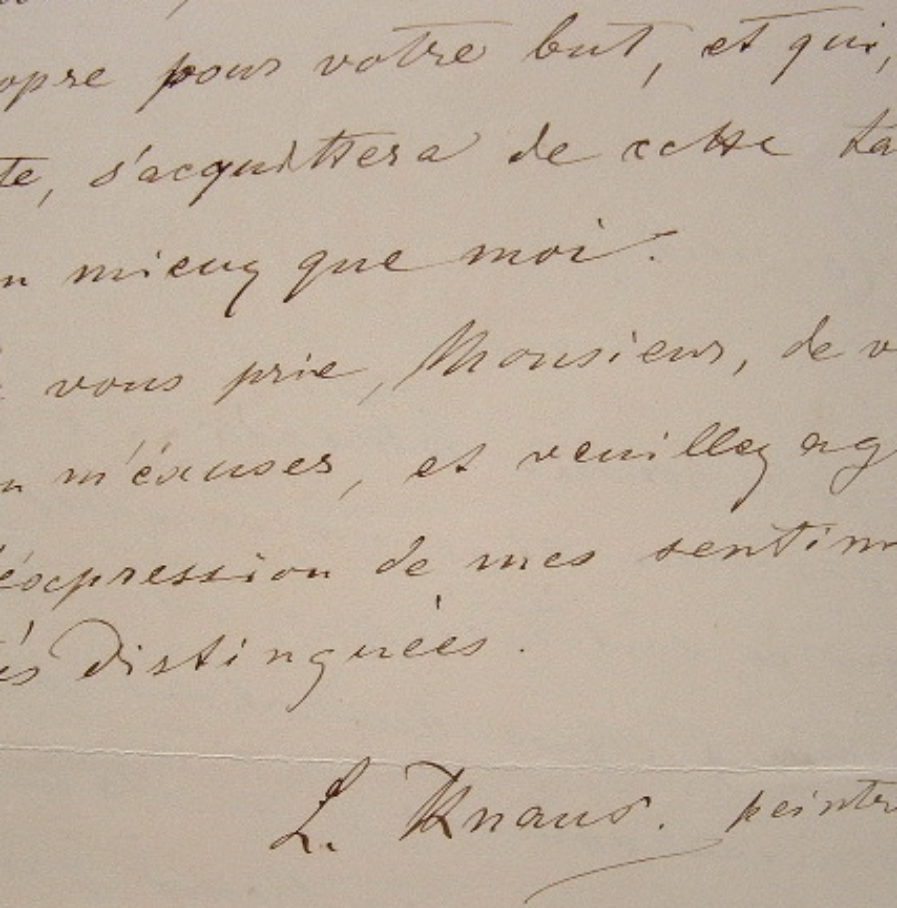 opre pour votre but, et qui,
te, s'acquittera de cette ta
n mieux que moi.
vous prie, Monsieur, de v
n m'éxcuser, et veuillez ag
éxpression de mes sentim
és distinguées.
L. Knaus. peintre